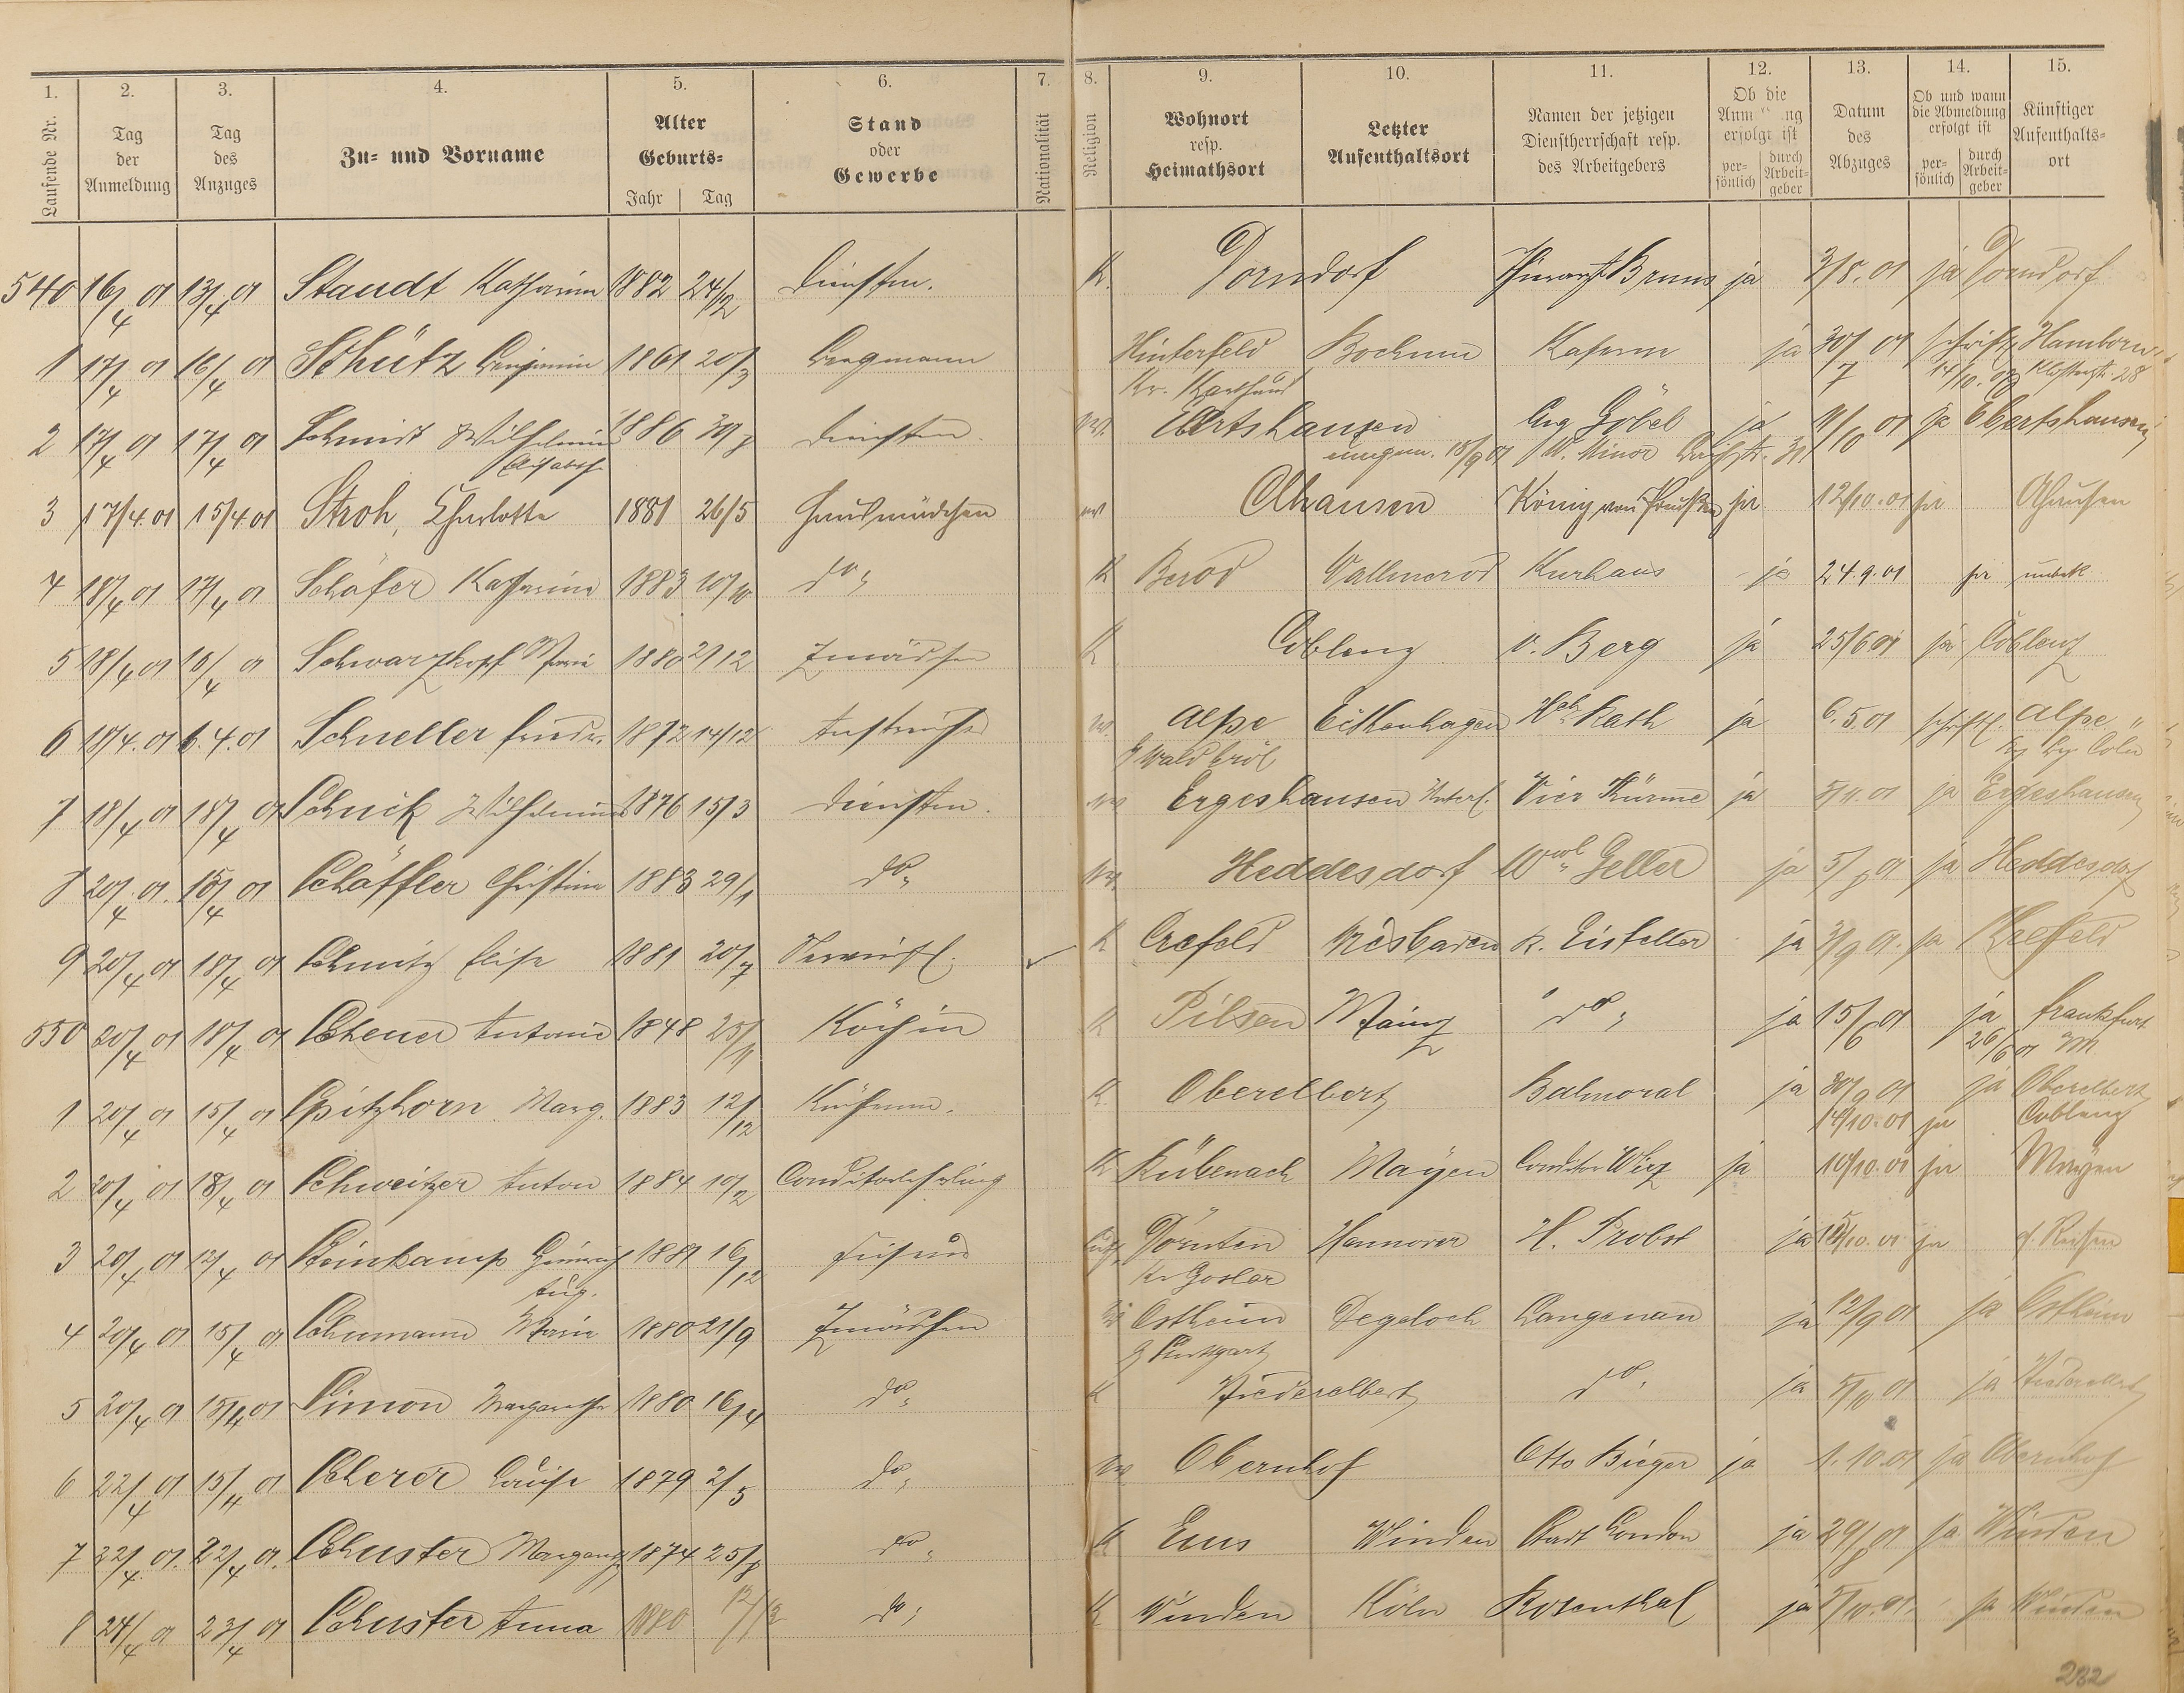 1. 2. 3. 4. 5. 6. 7. 8. 9. 10. 11. 12. 13. 14. 15.
Laufende Nr. Tag der Anmeldung Tag des Anzuges Zu- und Vorname Alter Geburts- Jahr Tag Stand oder Gewerbe Nationalität Religion Wohnort resp. Heimathsort Letzter Aufenthaltsort Namen der jetzigen Dienstherrschaft resp. des Arbeitgebers Ob die erfolgt ist per- sönlich durch Arbeit- geber Datum des Abzuges Ob und wann die Abmeldung erfolgt ist per- sönlich durch Arbeit- geber Künftiger Aufenthalts- ort
540 16/4 01 13/4 01 Staudt Katharina 1882 24/12 Dienstm. K. Dorndorf Bruns ja 3/8. 01 ja Dorndorf
1 17/4 01 16/4 01 Schütz Benjamin 1861 20/3 Bergmann Hinterfeld Bochum Kaserne ja 30/7 01 schriftl. Hamborn
Kr. Karthaus 14/10. 01 Klosterstr. 28
2 17/4 01 17/4 01 Schmidt Wilhelmine 1886 Dienstm. Ebertshausen Aug Göbel ja 11/10 01 ja Ebertshausen
Elisabeth 18/9 01 W. Minor 31
3 17/4. 01 15/4. 01 Stroh, Charlotte 1881 26/5 Hausmädchen Ahausen König von Preußen ja 12/10. 01 ja Ahausen
4 18/4 01 17/4 01 Schäfer Katharina 1883 10/10 do K Berod Wallmerod Kurhaus ja 24. 9. 01 ja unbek
5 18/4 01 Schwarzkopf Maria 1880 2/12 Zmädchen K Coblenz v. Berg ja 25/6 01 ja Coblenz
6 18/4. 01 6. 4. 01 Schneller Friedr. 1872 14/12 Anstreicher Alpe Eckenhagen Rath ja 6. 5. 01 schriftl. Alpe
Waldbröl Cöln
7 18/4 01 18/4 01 Schuck Wilhelmine 1876 15/3 Dienstm. Ergeshausen Vier Türme ja 5/11. 01 ja Ergeshausen
8 20/4 01. 15/4 01 Schäffler Christine 1883 29/1 do Heddesdorf Wwe Geller ja 5/8 01 ja Heddesdorf
9 20/4 01 18/4 01 Schmitz Elise 1881 20/7 K Crefeld Wiesbaden R. Eisfeller ja 3/9 01. ja Crefeld
550 20/4 01 18/4 01 Scheuer Antonie 1848 25/11 Köchin K Pilsen Mainz do ja 15/6 01 ja Frankfurt
26/6 01 M
1 20/4 01 15/4 01 Spitzhorn Marg. 1883 12/12 Küchenm. K. Oberelbert Balmoral ja 30/9 01 ja Oberelbert
14/10. 01 ja Coblenz
2 20/4 01 18/4 01 Schweitzer Anton 1884 10/2 Conditorlehrling K Rübenach Mayen Conditor Wirz ja 10/10. 01 ja Mayen
3 20/4 01 12/4 01 Steinkamp Heinrich 1881 16/12 Friseur Dörnten Hannover H. Probst ja 15/10. 01 ja a. Reisen
Aug. Kr Goslar
4 20/4 01 15/4 01 Schumann Maria 1880 21/9 Zmädchen Ostheim Degeloch Langenau ja 12/9 01 ja Ostheim
Stuttgart
5 20/4 01 15/4 01 Simon Margarethe 1880 16/4 do K Niederelbert do ja 5/10 01 ja Niederelbert
6 22/4 01 15/4 01 Scherer Louise 1879 2/5 do Obernhof Otto Bieger ja 1. 10. 01 ja Obernhof
7 22/4. 01. 22/4 01. Schuster Margareth 1874 25/8 do K Ems Winden Stadt London ja 29/8 01 ja Winden
8 24/4 01 23/4 01 Schuster Anna 1880 do K Winden Köln Rosenthal ja 5/10. 01. ja Winden
282